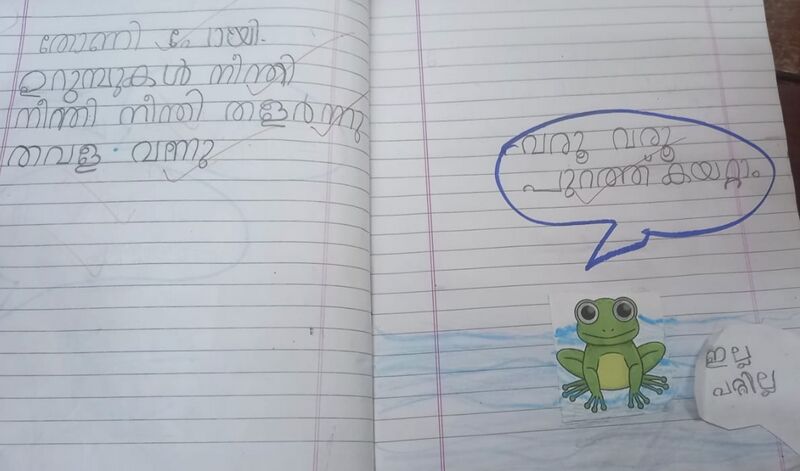 തോണി പോയി.
ഉറുമ്പുകൾ നീന്തി
നീന്തി നീന്തി തളർന്നു
തവള വന്നു
വരൂ വരൂ
പുറത്ത് കയറ്റാം
ഇല്ല
പറ്റില്ല